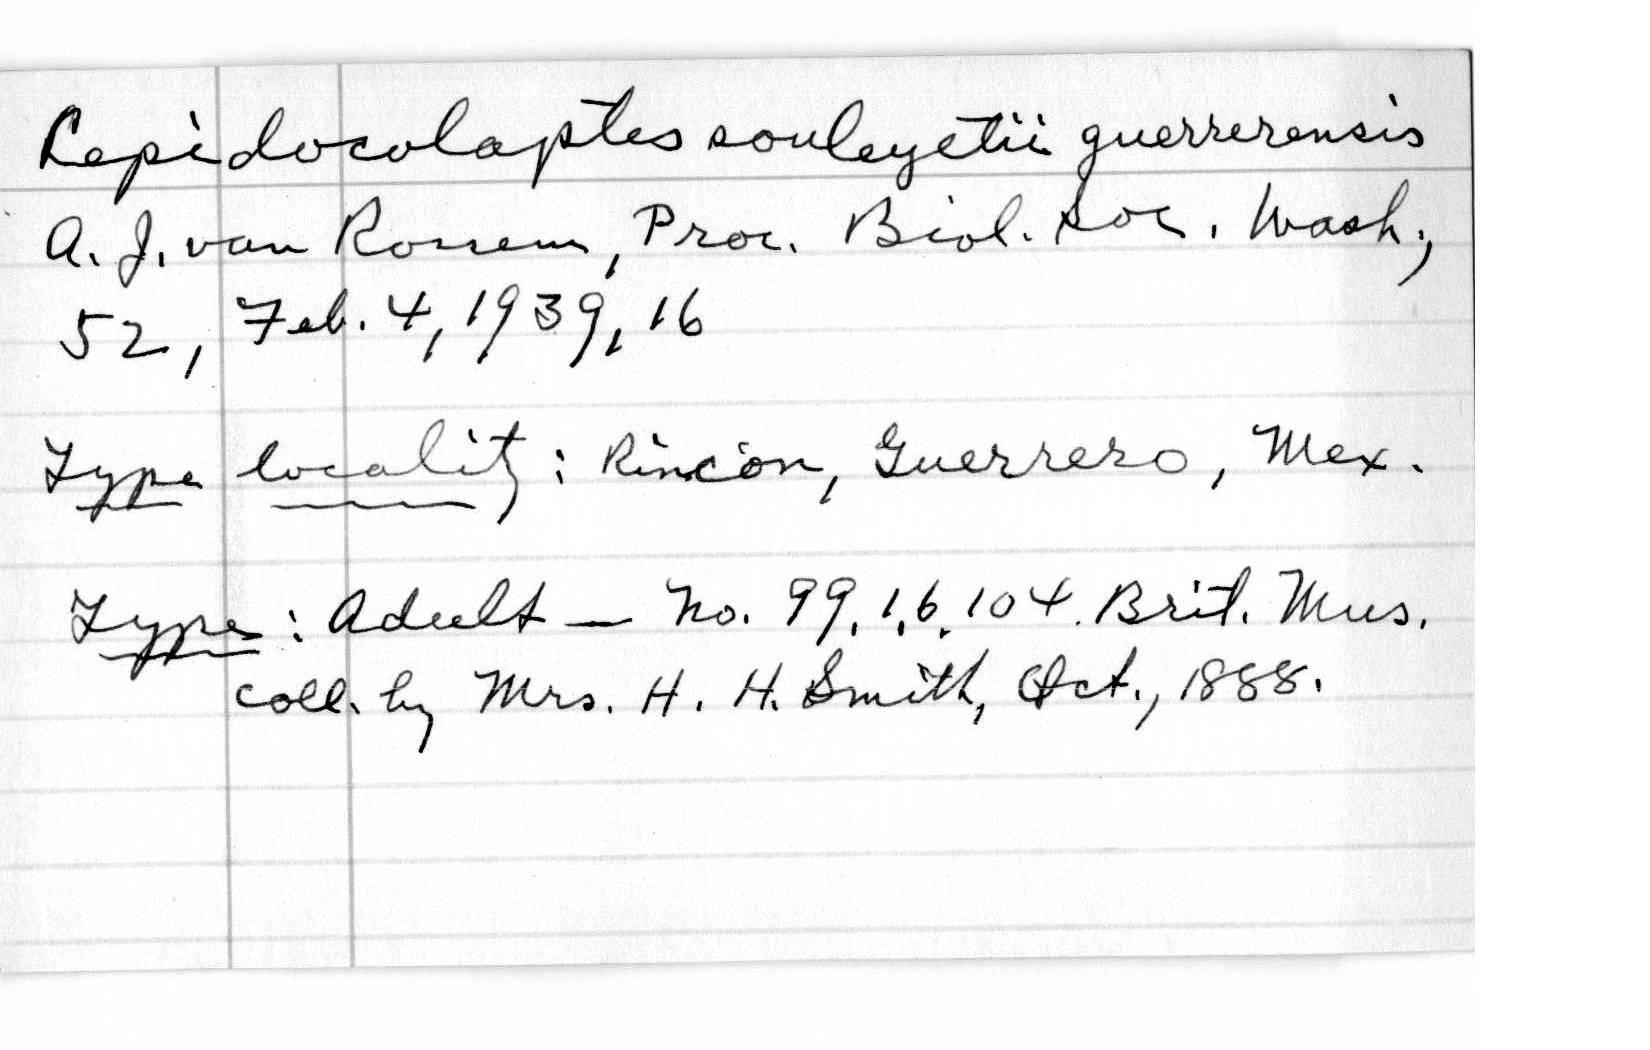 Lepidocolaptes souleyetii guerrerensis
A. J. van Rossem, Proc. Biol. Soc. Wash.,
52, Feb. 4, 1939, 16
Type locality: Rincón, Guerrero, Mex.
Type: Adult — No. 99.1.6.104. Brit. Mus.
coll. by Mrs. H. H. Smith, Oct., 1888.